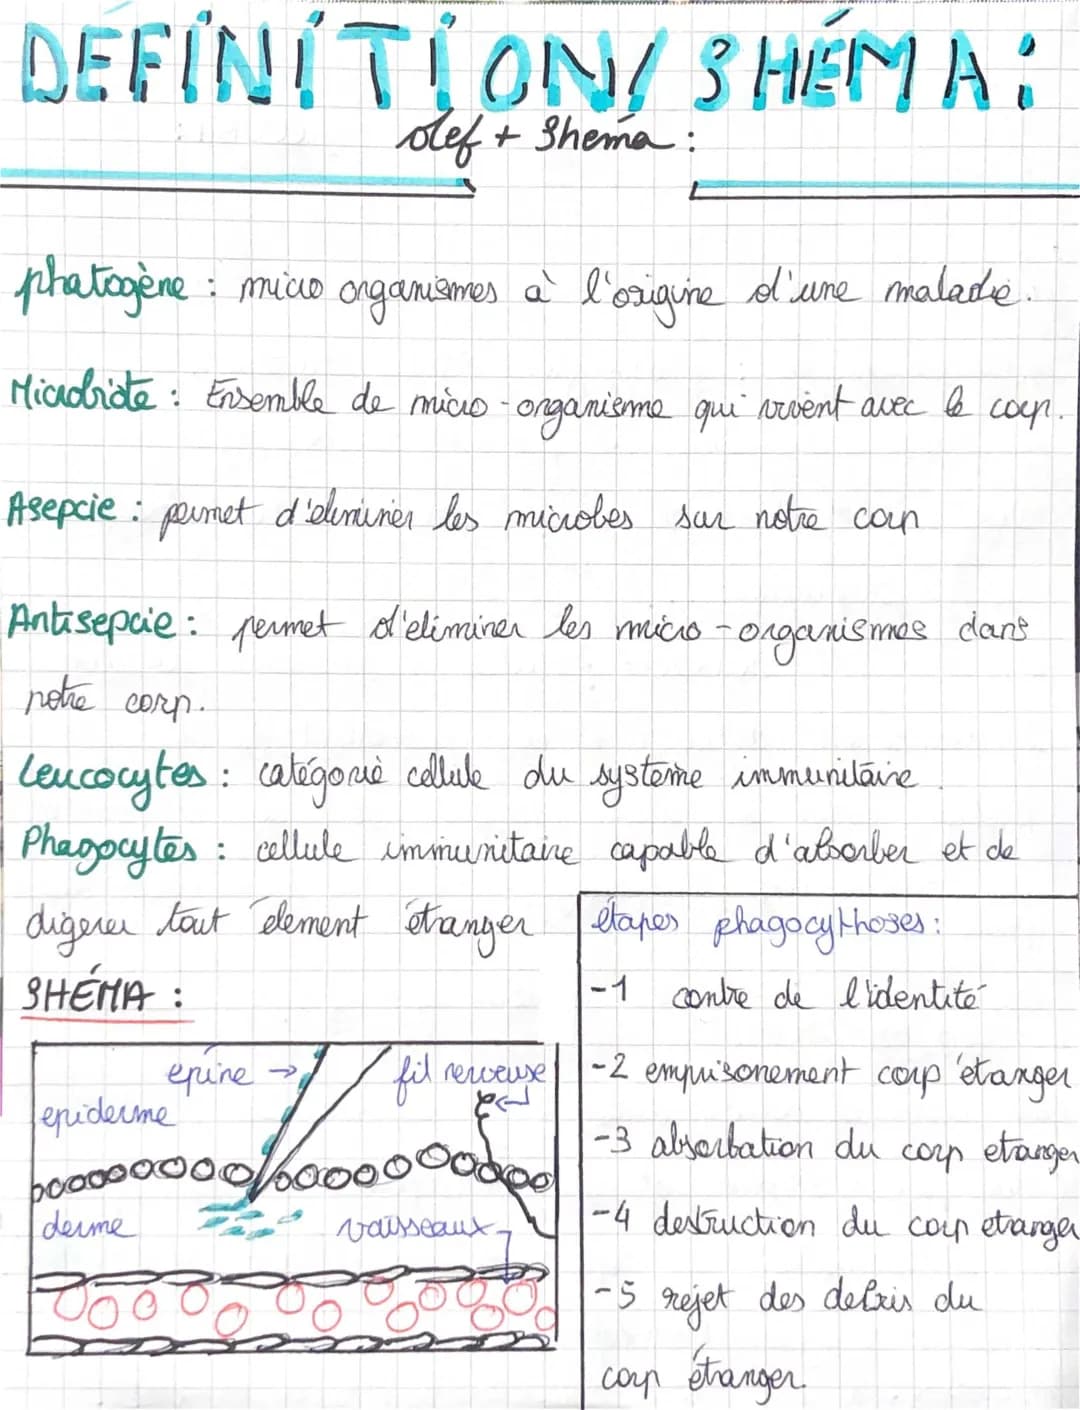 DÉFINITION/SHÉMA:
def + Shema :
phatogène : micro organismes à l'origine d'une maladie.
Microbiote : Ensemble de micro-organisme qui vivent avec le corp.
Asepcie : permet d'eliminer les microbes sur notre corp
Antisepcie : permet d'eliminer les micro-organismes dans
notre corp.
Leucocytes : catégorie cellule du systeme immunitaire.
Phagocytes : cellule immunitaire capable d'absorber et de
digerer tout element étranger
étapes phagocythoses :
-1 contre de l'identité
-2 emprisonement corp étranger
-3 absorbation du corp etranger
-4 destruction du corp etranger
-5 rejet des debris du
corp étranger.
SHÉMA :
epine →
fil nerveuse
epiderme
derme
vaisseaux